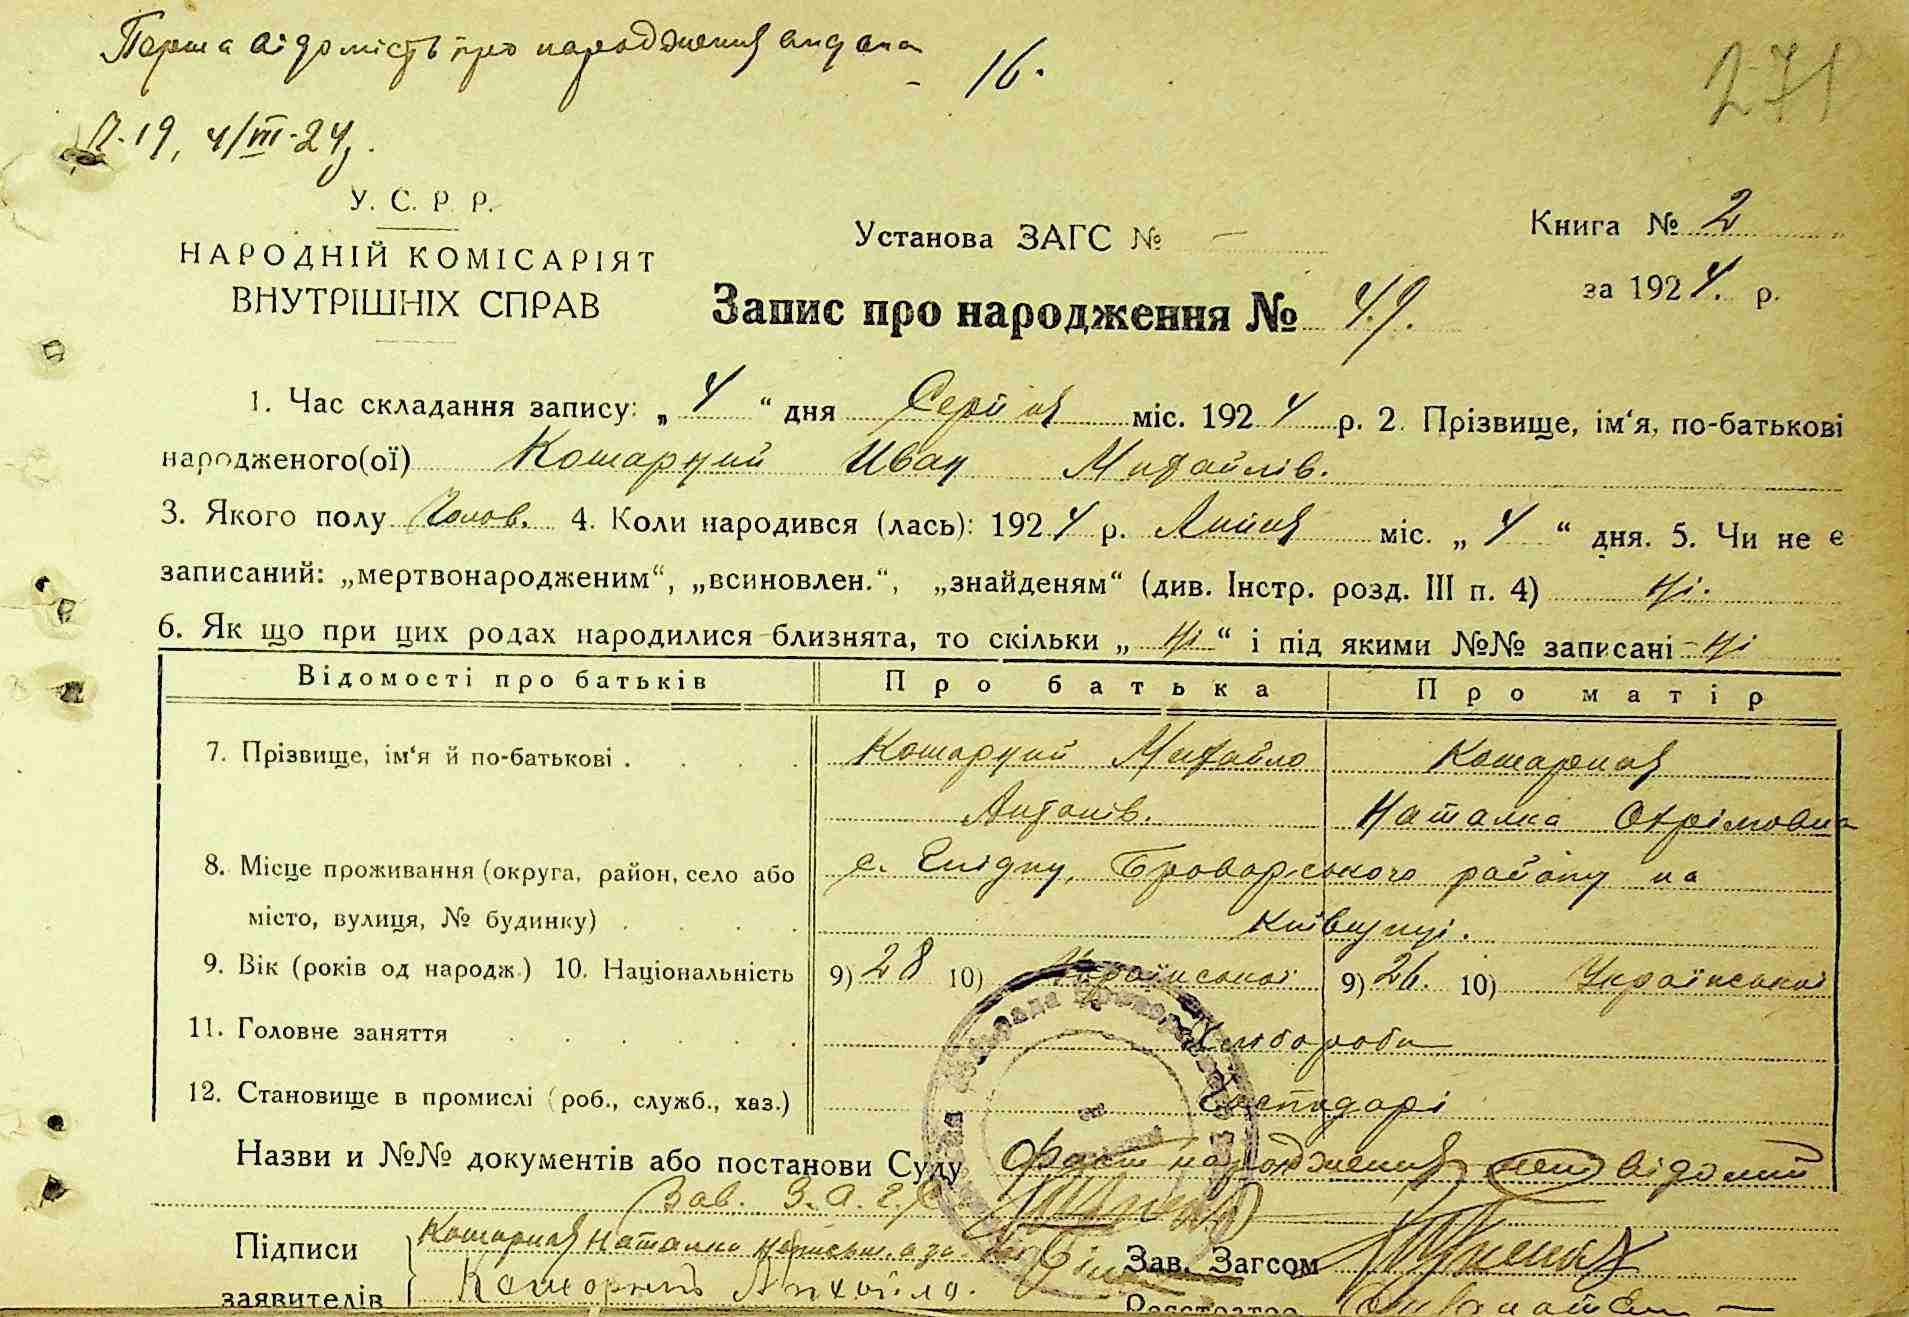 Перша відомість про народження видана
- 16.
271
П-19, 4/III-24 р.
У. С. Р. Р.
НАРОДНІЙ КОМІСАРІЯТ
ВНУТРІШНІХ СПРАВ
Установа ЗАГС № -
Книга № 2
за 1924 р.
Запис про народження № 49.
1. Час складання запису: „ 4 “ дня Серпня міс. 1924 р. 2. Прізвище, ім‘я, по-батькові
народженого(ої) Кошарний Иван Михайлів.
3. Якого полу Чолов. 4. Коли народився (лась): 1924 р. Липня міс. „ 4 “ дня. 5. Чи не є
записаний: „мертвонародженим“, „всиновлен.“, „знайденям“ (див. Інстр. розд. III п. 4) Ні.
6. Як що при цих родах народилися близнята, то скільки „ Ні “ і під якими №№ записані - Ні
Відомості про батьків Про батька Про матір
7. Прізвище, ім‘я й по-батькові . Кошарний Михайло Кошарная
Антонів. Наталка Охрімовна
8. Місце проживання (округа, район, село або с. Броварського району на
місто, вулиця, № будинку) Київщині.
9. Вік (років од народж.) 10. Національність 9) 28 10) Української 9) 26. 10) Української
11. Головне заняття Хлібороби
12. Становище в промислі (роб., служб., хаз.) Господарі
Назви и №№ документів або постанови Суду Факт народження відомий
Зав. З.А.Г.С.
Підписи Кошарная Наталка Зав. Загсом
заявителів Кошорный Михайло.